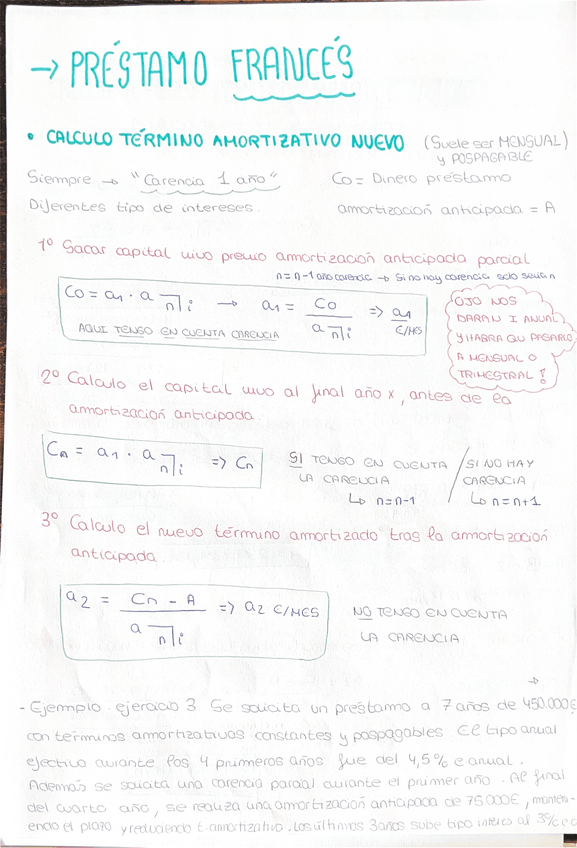 → PRÉSTAMO FRANCÉS
• CALCULO TÉRMINO AMORTIZATIVO NUEVO (Suele ser MENSUAL)
y POSPAGABLE
Siempre → "Carencia 1 año" Co = Dinero préstamo
Diferentes tipo de intereses. amortización anticipada = A
1º Sacar capital vivo previo amortización anticipada parcial
n=n-1 año carencia → Si no hay carencia solo seria n
Co = a1 · a n⌉i → a1 = Co / a n⌉i => a1 €/MES
AQUI TENGO EN CUENTA CARENCIA
OJO NOS
DARAN I ANUAL
Y HABRA QU PASARLO
A MENSUAL O
TRIMESTRAL !
2º Calculo el capital vivo al final año x, antes de la
amortización anticipada.
Cn = a1 · a n⌉i => Cn
SI TENGO EN CUENTA / SI NO HAY
LA CARENCIA CARENCIA
↳ n=n-1 ↳ n=n+1
3º Calculo el nuevo término amortizado tras la amortización
anticipada.
a2 = Cn - A / a n⌉i => a2 €/MES
NO TENGO EN CUENTA
LA CARENCIA
→
- Ejemplo ejercicio 3 Se solicita un préstamo a 7 años de 450.000€
con terminos amortizativos constantes y pospagables El tipo anual
efectivo durante los 4 primeros años fue del 4,5% e anual.
Además se solicita una carencia parcial durante el primer año. Al final
del cuarto año, se realiza una amortización anticipada de 75000€, manten-
endo el plazo y reduciendo t.amortizativo. Los últimos 3 años sube tipo interés al 3%